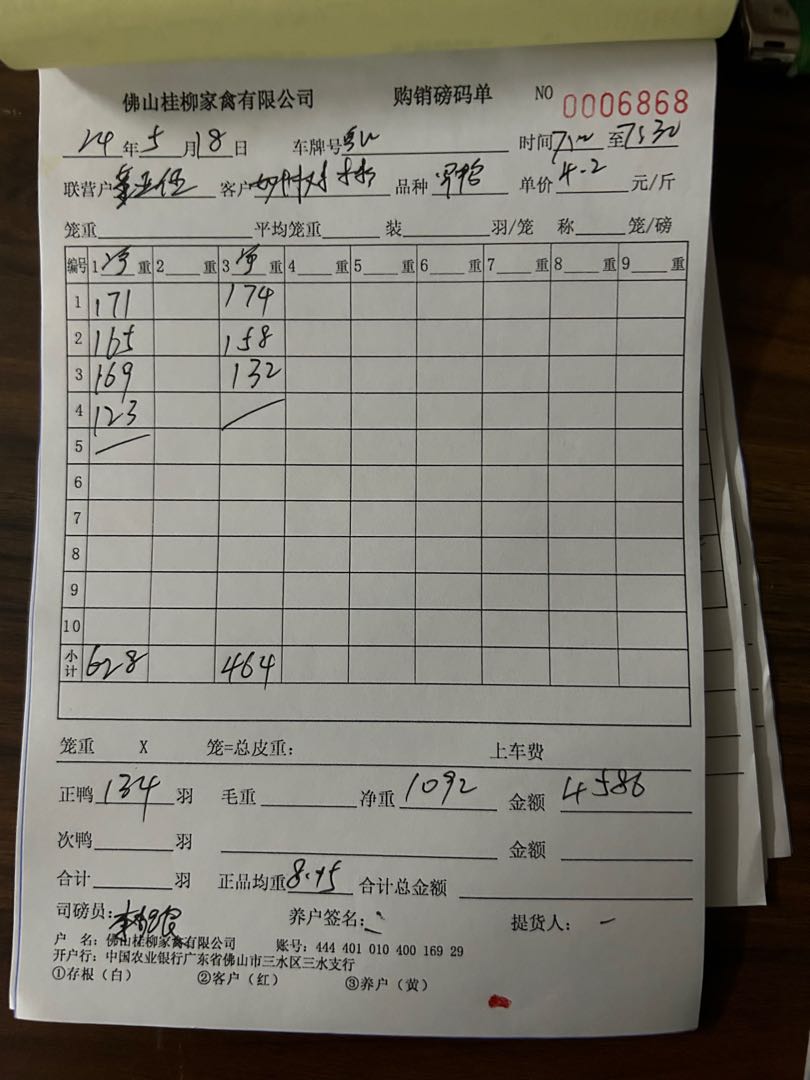 佛山桂柳家禽有限公司 购销磅码单 NO 0006868
24年5月18日 车牌号 时间 至7:30
联营户 客户 品种 单价4.2元/斤
笼重 平均笼重 装 羽/笼 称 笼/磅
编号 1净重 2 重 3净重 4 重 5 重 6 重 7 重 8 重 9 重
1 171 174
2 165 158
3 169 132
4 123
5
6
7
8
9
10
小计 628 464
笼重 X 笼=总皮重: 上车费
正鸭134羽 毛重 净重1092 金额4586
次鸭 羽 金额
合计 羽 正品均重8.15 合计总金额
司磅员: 养户签名: 提货人:
户 名:佛山桂柳家禽有限公司 账号:444 401 010 400 169 29
开户行:中国农业银行广东省佛山市三水区三水支行
①存根(白) ②客户(红) ③养户(黄)